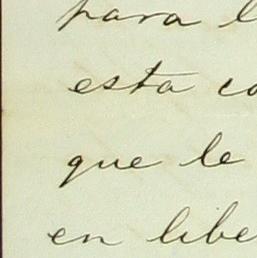 para l
esta co
que le
en libe